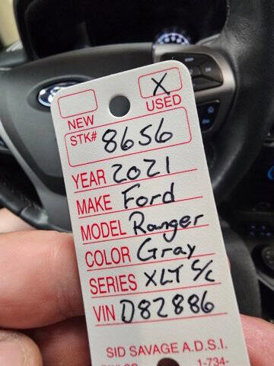 X
NEW USED
STK# 8656
YEAR 2021
MAKE Ford
MODEL Ranger
COLOR Gray
SERIES XLT S/C
VIN D82886
SID SAVAGE A.D.S.I.
1-734-